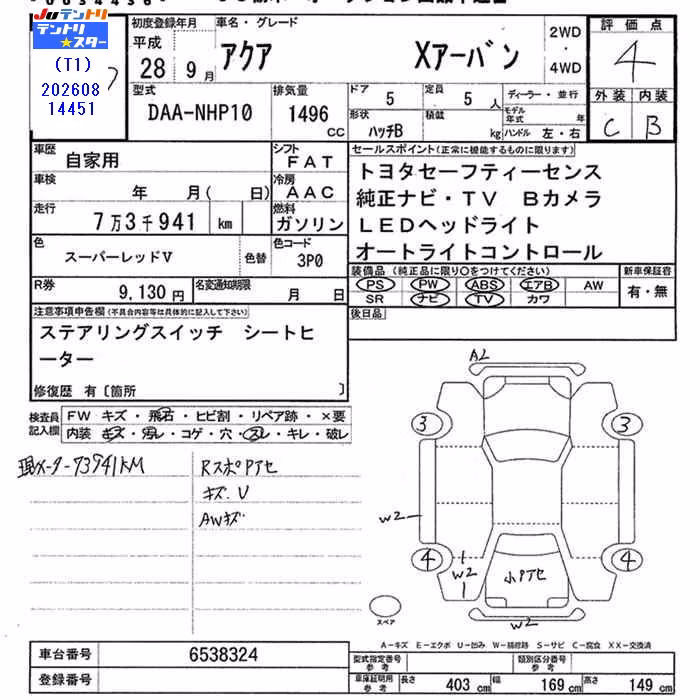 Juテントリ
テントリ★スター
(T1)
202608
14451
初度登録年月
平成
28年 9月
車名・グレード
アクア Xアーバン
2WD
・
4WD
評価点
4
外装 内装
C B
型式
DAA-NHP10
排気量
1496
CC
ドア 5
定員 5 人
ディーラー・並行
モデル年式 年
形状 ハッチB
積載 kg
ハンドル 左・右
車歴 自家用
シフト FAT
車検 年 月( 日)
冷房 AAC
走行 7万3千941 km
燃料 ガソリン
色 スーパーレッドV
色替
色コード 3P0
R券 9,130円
名変通知期限 月 日
セールスポイント(正常に機能するものに限ります)
トヨタセーフティーセンス
純正ナビ・TV Bカメラ
LEDヘッドライト
オートライトコントロール
装備品(純正品に限り○をつけてください)
新車保証書
PS PW ABS エアB AW
有・無
SR ナビ TV カワ
後日品
注意事項申告欄(不具合内容等は具体的に記入して下さい)
ステアリングスイッチ シートヒ
ーター
修復歴 有〔箇所 〕
検査員
記入欄
FW キズ・飛石・ヒビ割・リペア跡・×要
内装 キズ・汚レ・コゲ・穴・スレ・キレ・破レ
現メーター73941KM
RスポPアセ
キズ.V
AWキズ
A2
3 3
W2
4 4
W2
小Pアセ
W2
スペア
A-キズ E-エクボ U-凹み W-補修跡 S-サビ C-腐食 XX-交換済
車台番号 6538324
登録番号
型式指定番号
参考
類別区分番号
参考
車庫証明用
参考
長さ 403 cm 幅 169 cm 高さ 149 cm